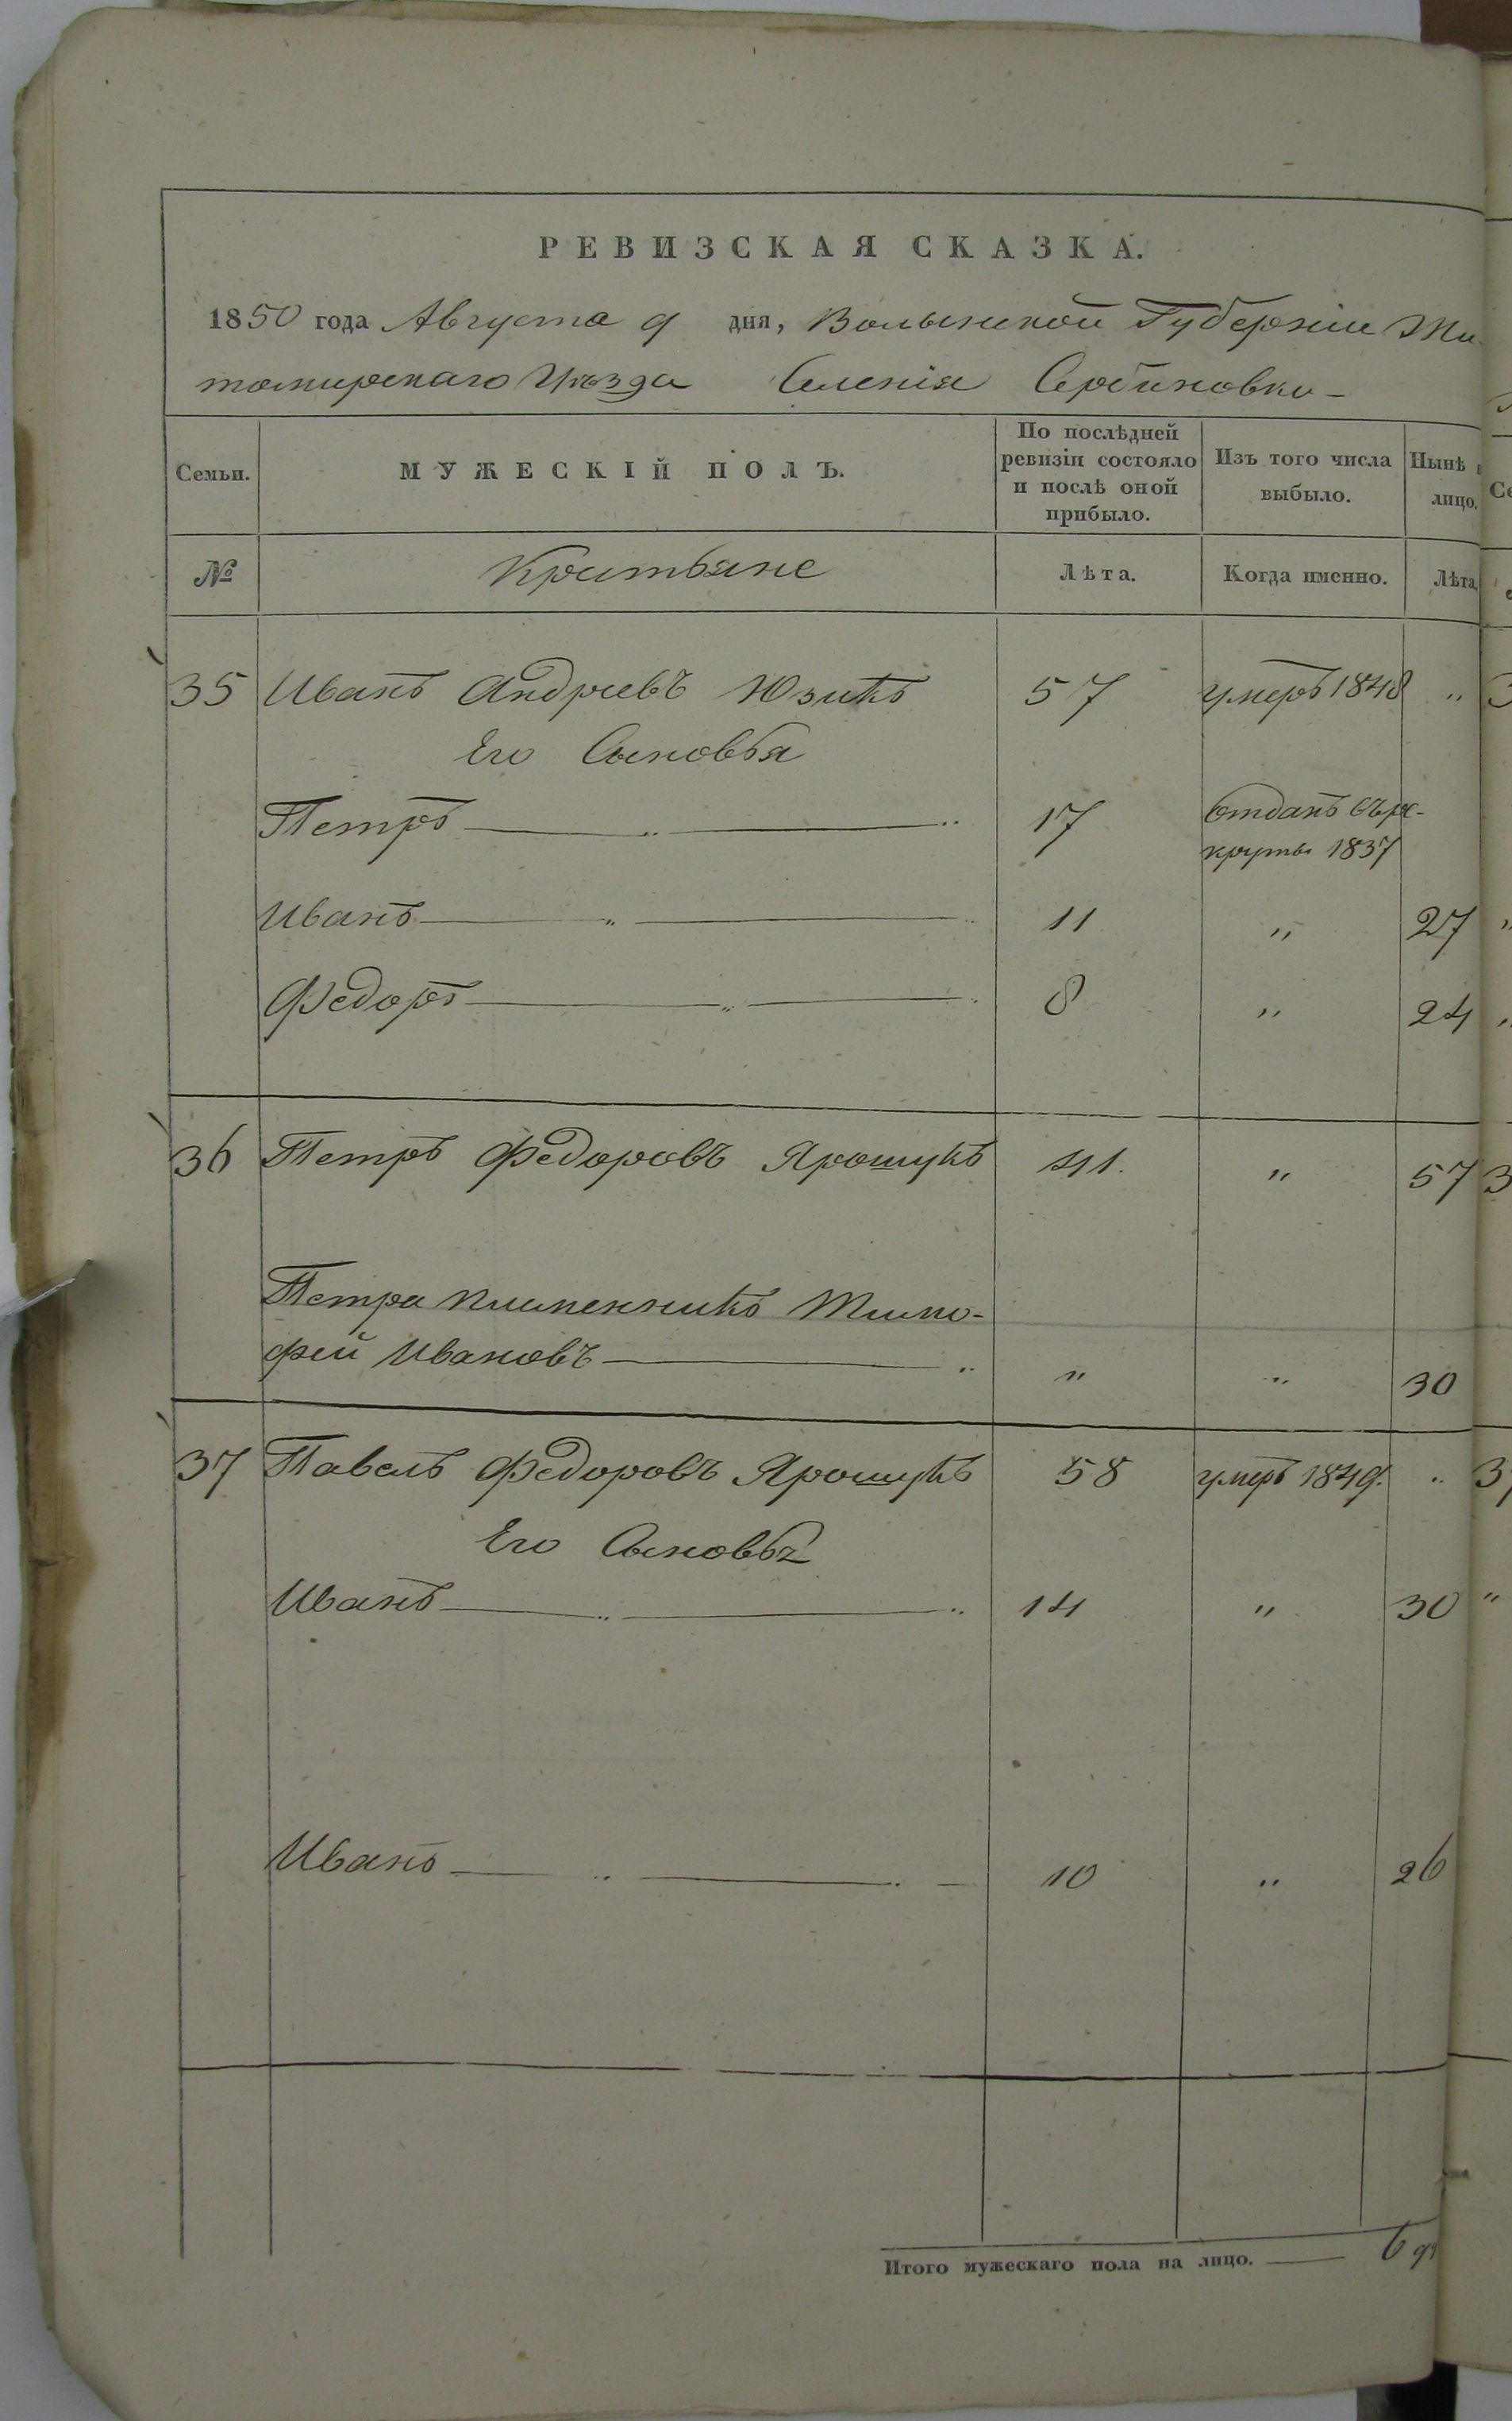 РЕВИЗСКАЯ СКАЗКА.
1850 года Августа 9 дня, Волынской Губерніи Жи-
томирскаго Уѣзда Селенія Сербиновки
Семьи. МУЖЕСКІЙ ПОЛЪ. По послѣдней ревизіи состояло и послѣ оной прибыло. Изъ того числа выбыло. Нынѣ лицо.
№ Крестьяне Лѣта. Когда именно. Лѣта
35 Иванъ Андреевъ Юзикъ 57 умеръ 1848 "
Его Сыновья
Петръ — " — " 17 Отданъ въ ре-
круты 1837
Иванъ — " — " 11 " 27
Федоръ — " — " 8 " 24
36 Петръ Федоровъ Ярошукъ 41. " 57
Петра племенникъ Тимо-
фей Ивановъ — " " " 30
37 Павелъ Федоровъ Ярошукъ 58 умеръ 1849. "
Его Сыновья
Иванъ — " — " 14 " 30
Иванъ — " — " — 10 " 26
Итого мужескаго пола на лицо. — 6